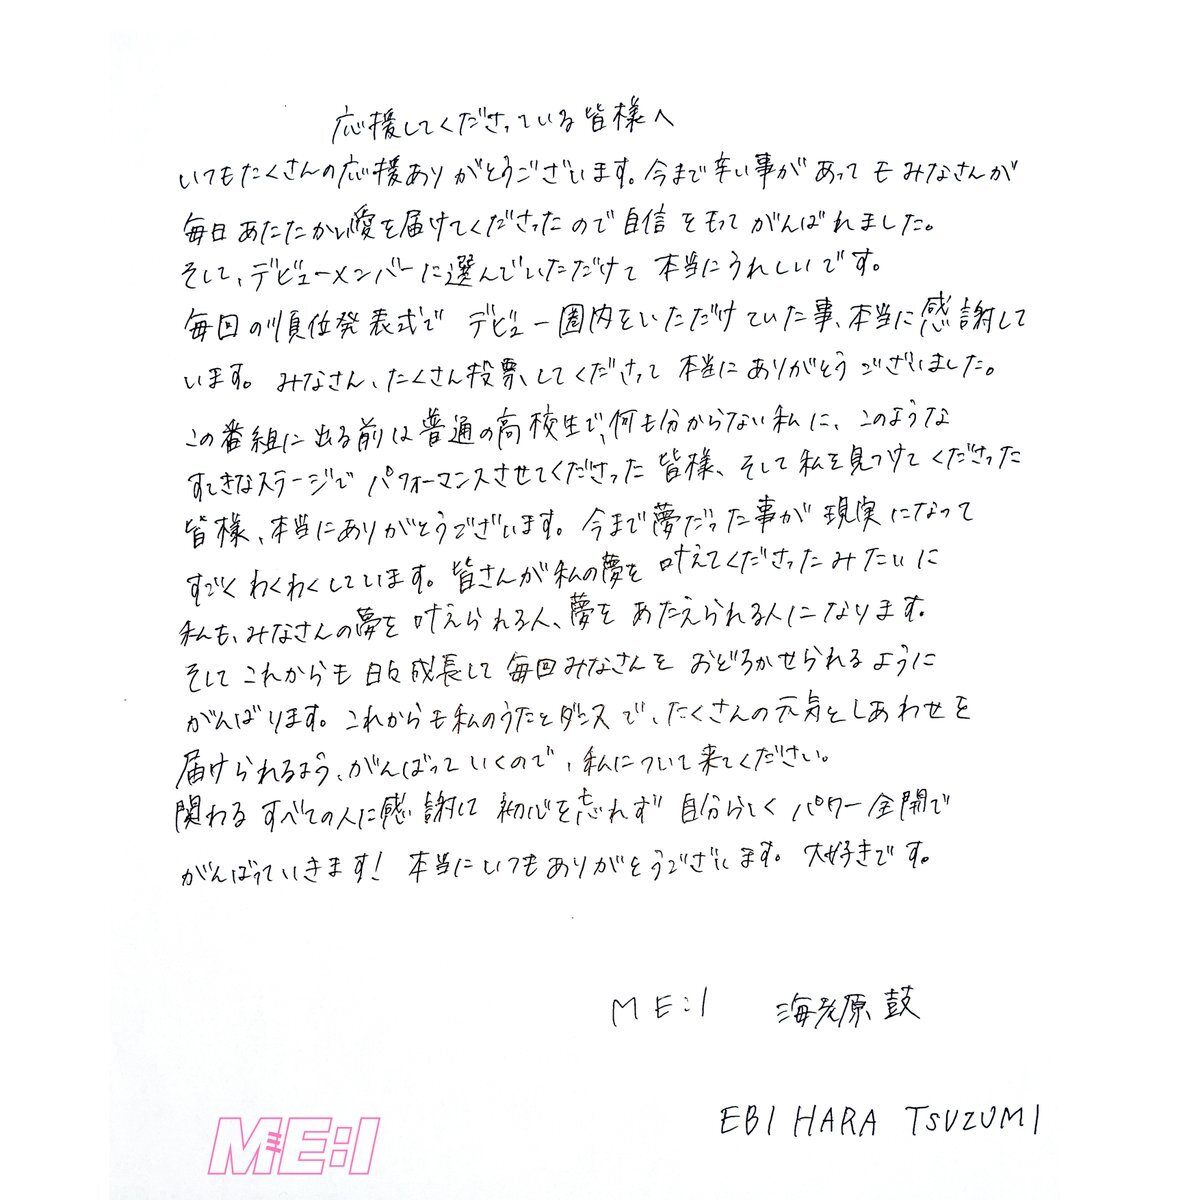 応援してくださっている皆様へ
いつもたくさんの応援ありがとうございます。今まで辛い事があってもみなさんが
毎日あたたかい愛を届けてくださったので自信をもってがんばれました。
そして、デビューメンバーに選んでいただけて本当にうれしいです。
毎回の順位発表式でデビュー圏内をいただけていた事、本当に感謝して
います。みなさん、たくさん投票してくださって本当にありがとうございました。
この番組に出る前は普通の高校生で、何も分からない私に、このような
すてきなステージでパフォーマンスさせてくださった皆様、そして私を見つけてくださった
皆様、本当にありがとうございます。今まで夢だった事が現実になって
すごくわくわくしています。皆さんが私の夢を叶えてくださったみたいに
私も、みなさんの夢を叶えられる人、夢をあたえられる人になります。
そしてこれからも日々成長して毎回みなさんをおどろかせられるように
がんばります。これからも私のうたとダンスで、たくさんの元気としあわせを
届けられるよう、がんばっていくので、私について来てください。
関わるすべての人に感謝して初心を忘れず自分らしくパワー全開で
がんばっていきます!本当にいつもありがとうございます。大好きです。
ME:I 海老原鼓
EBIHARA TSUZUMI
ME:I